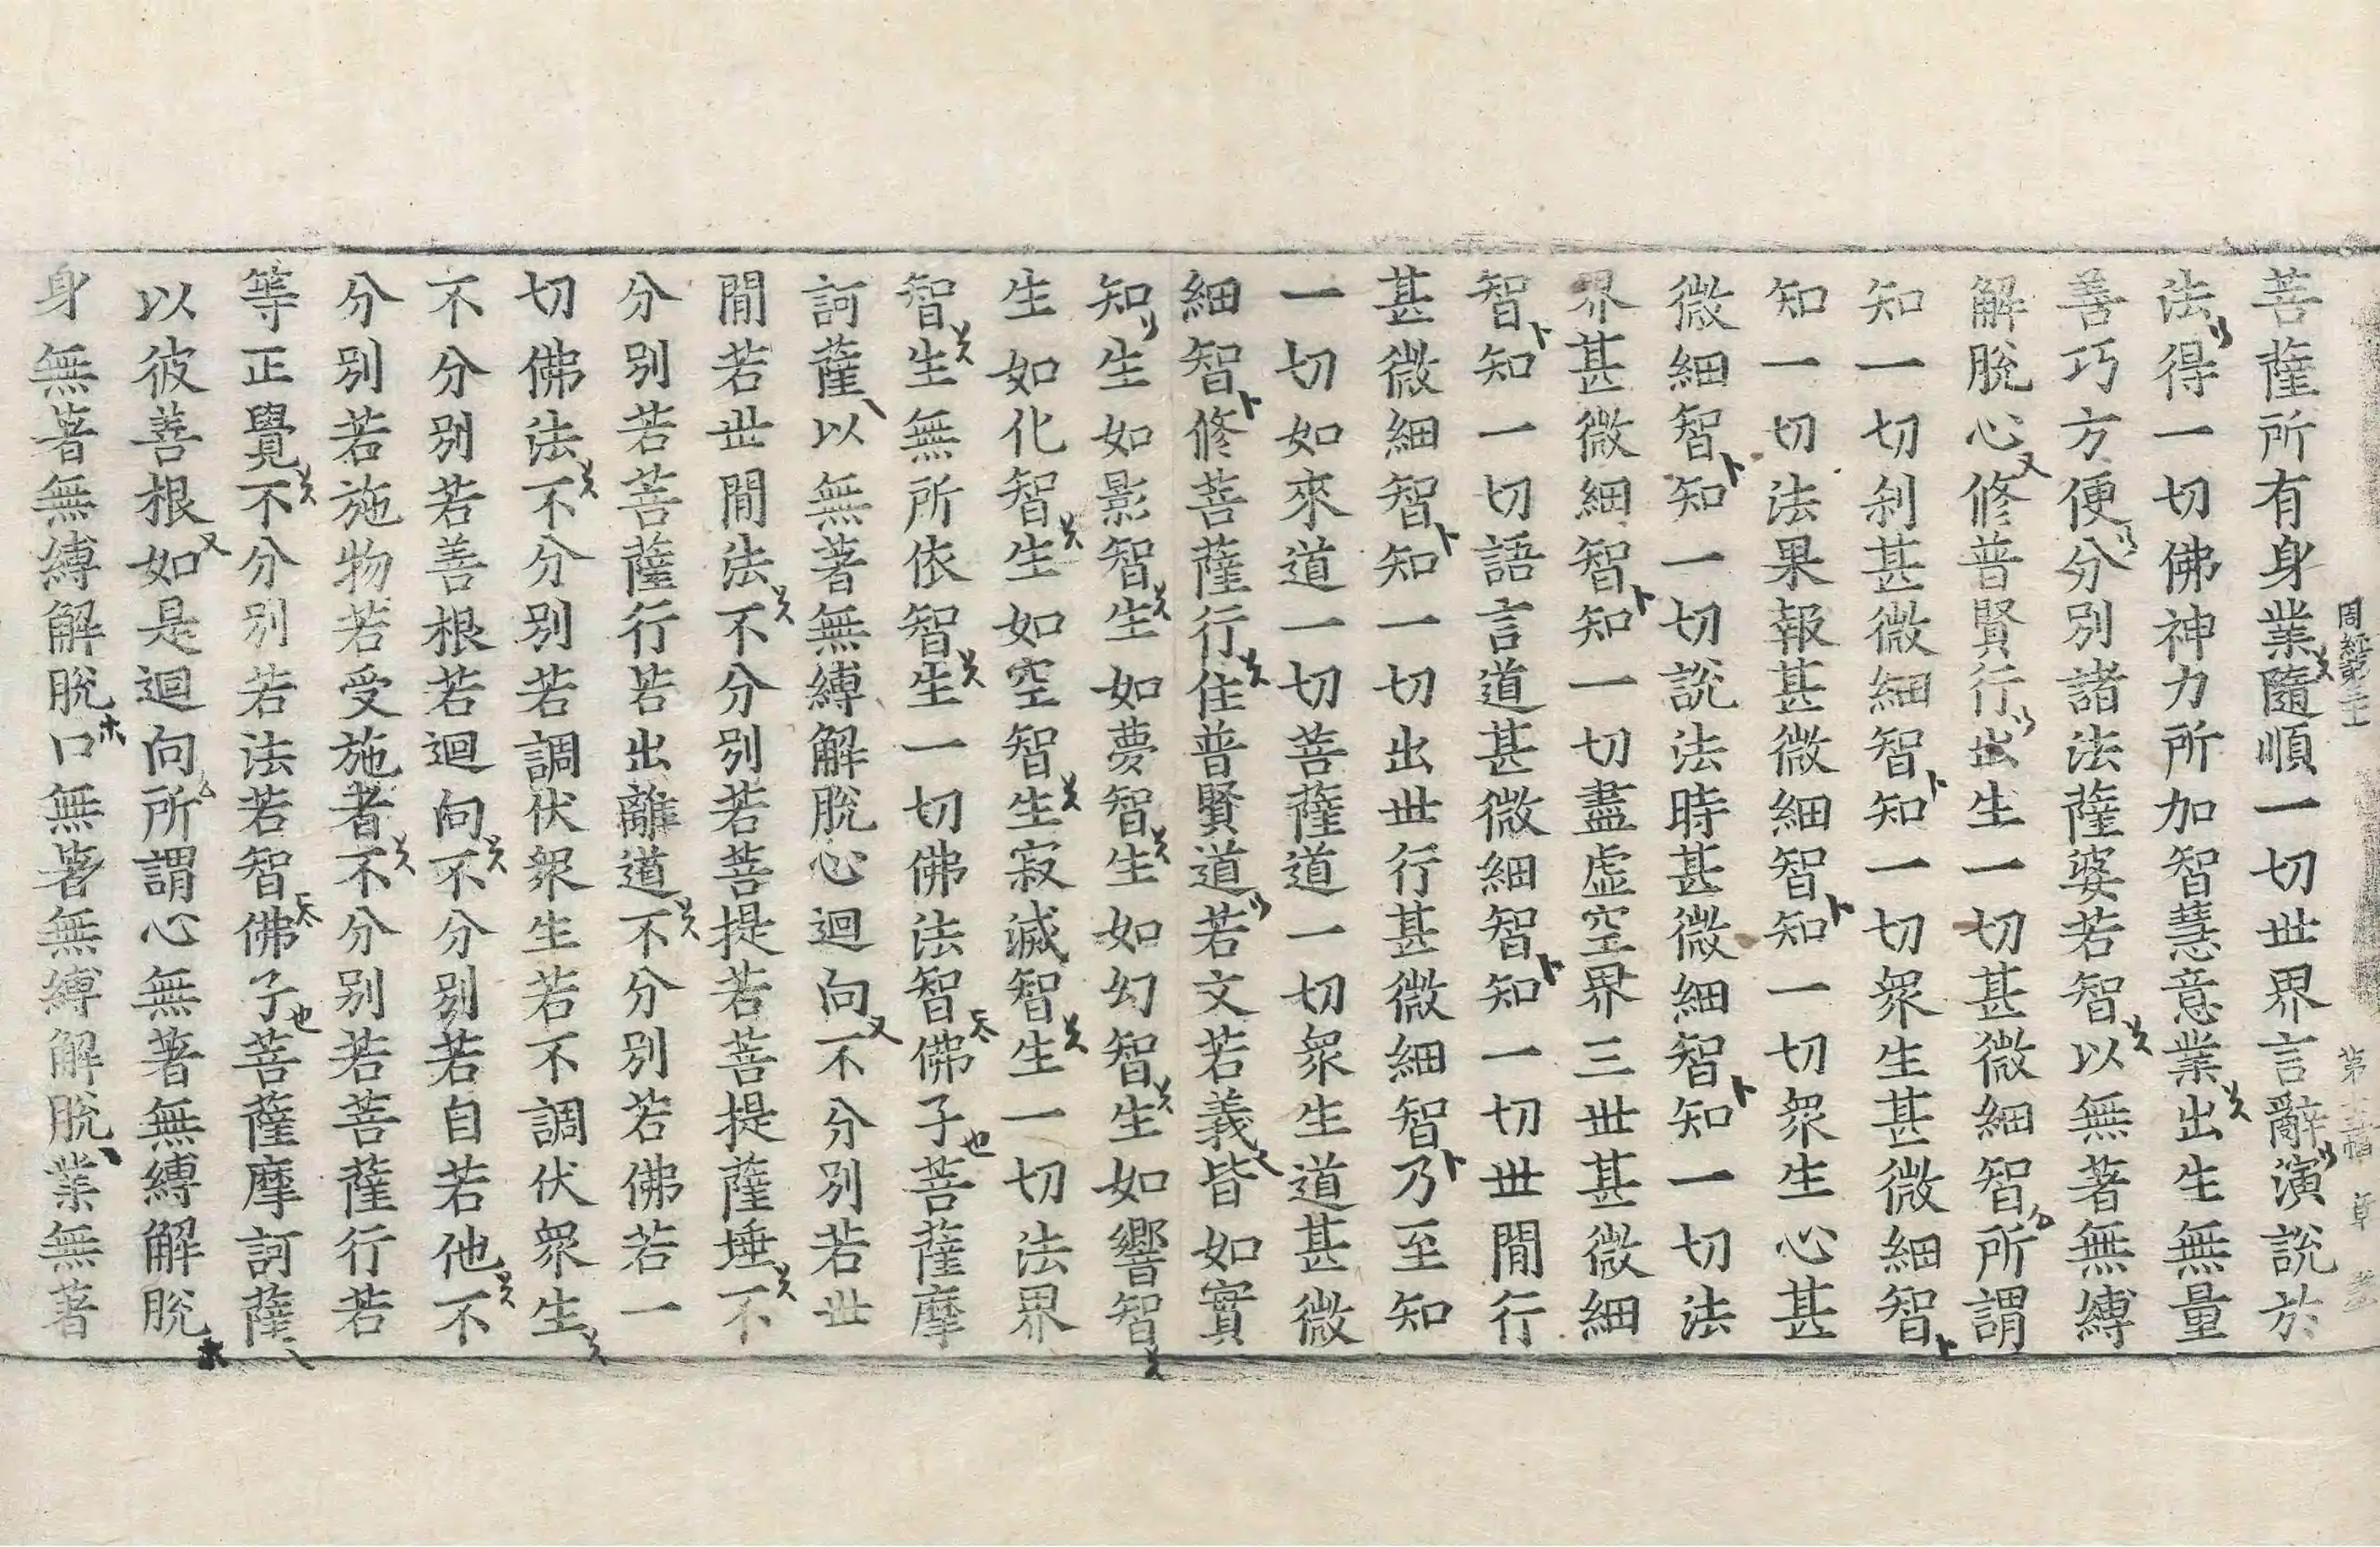 周經第三十 第十三幅
菩薩所有身業隨順一切世界言辭演說於
法得一切佛神力所加智慧意業出生無量
善巧方便分別諸法薩婆若智以無著無縛
解脫心修普賢行出生一切甚微細智所謂
知一切刹甚微細智知一切衆生甚微細智
知一切法果報甚微細智知一切衆生心甚
微細智知一切說法時甚微細智知一切法
界甚微細智知一切盡虛空界三世甚微細
智知一切語言道甚微細智知一切世閒行
甚微細智知一切出世行甚微細智乃至知
一切如來道一切菩薩道一切衆生道甚微
細智修菩薩行住普賢道若文若義皆如實
知生如影智生如夢智生如幻智生如響智
生如化智生如空智生寂滅智生一切法界
智生無所依智生一切佛法智佛子菩薩摩
訶薩以無著無縛解脫心迴向不分別若世
閒若世閒法不分別若菩提若菩提薩埵不
分別若菩薩行若出離道不分別若佛若一
切佛法不分別若調伏衆生若不調伏衆生
不分別若善根若迴向不分別若自若他不
分別若施物若受施者不分別若菩薩行若
等正覺不分別若法若智佛子菩薩摩訶薩
以彼善根如是迴向所謂心無著無縛解脫
身無著無縛解脫口無著無縛解脫業無著